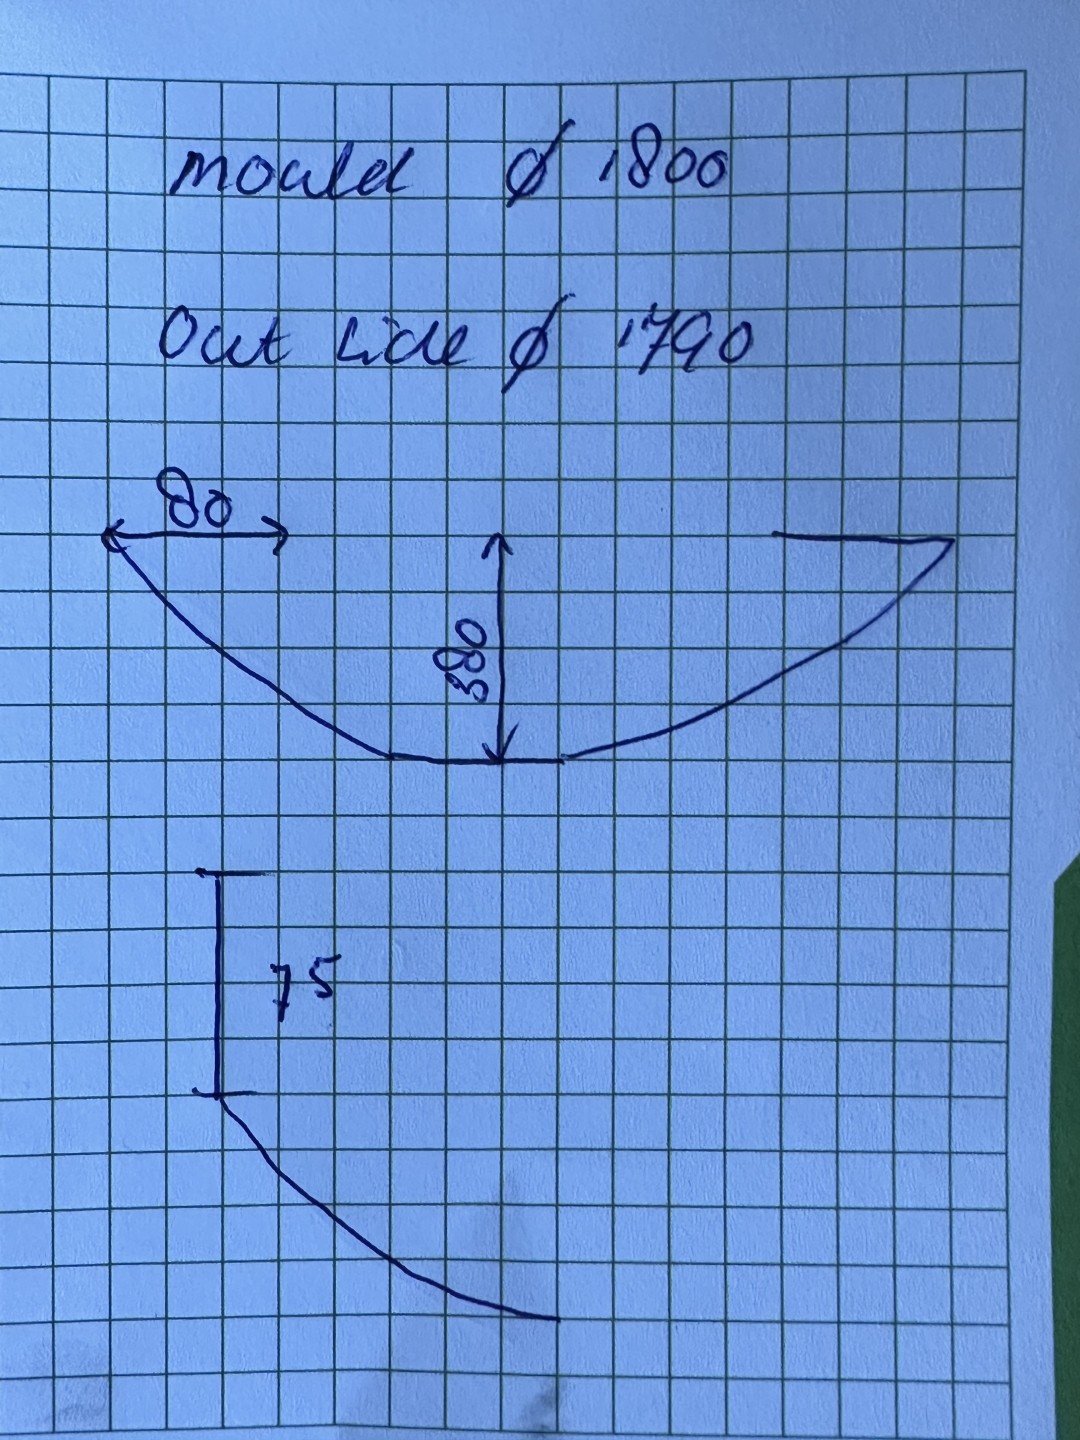 mould ϕ 1800
Out side ϕ 1790
80
380
75